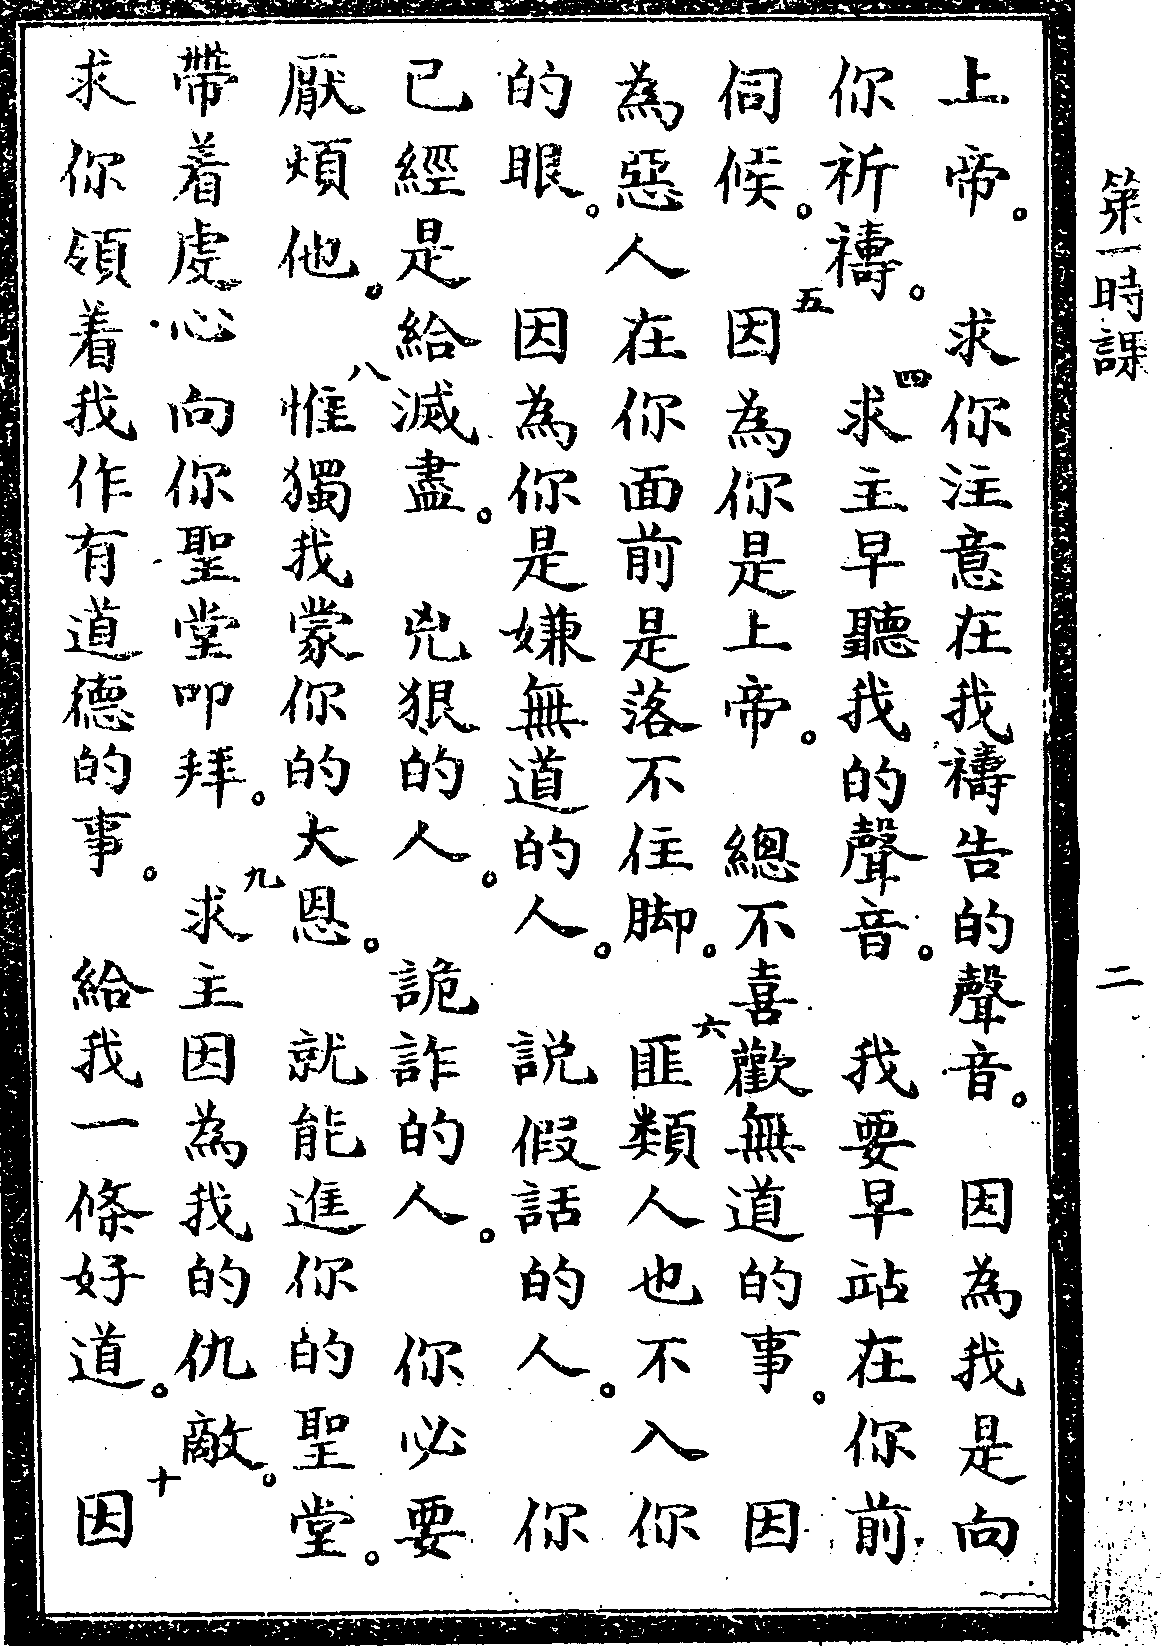 第一時課 二
上帝。求你注意在我禱告的聲音。因為我是向
你祈禱。四求主早聽我的聲音。我要早站在你前
伺候。五因為你是上帝。總不喜歡無道的事。因
為惡人在你面前是落不住脚。六匪類人也不入你
的眼。因為你是嫌無道的人。説假話的人。你
已經是給滅盡。兇狠的人。詭詐的人。你必要
厭煩他。八惟獨我蒙你的大恩。就能進你的聖堂。
帶着虔心向你聖堂叩拜。九求主因為我的仇敵。
求你領着我作有道德的事。給我一條好道。十因